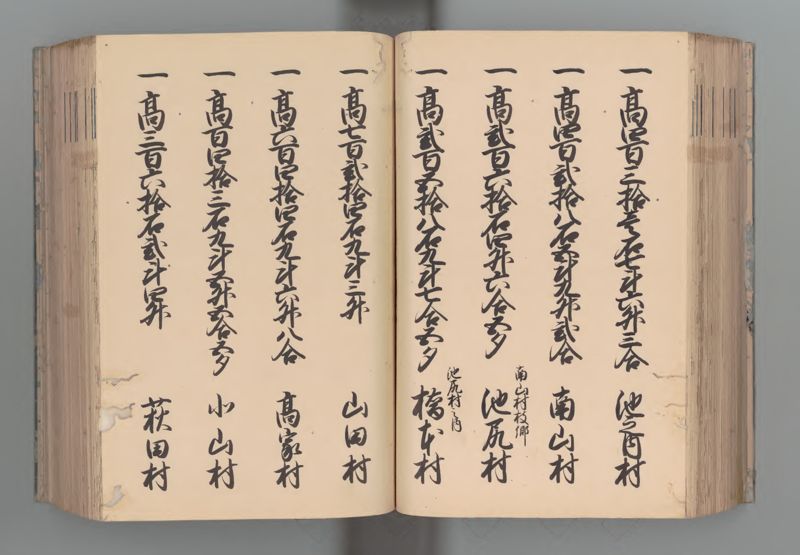 一高四百三拾壱石七斗六升三合 池之内村
一高四百弐拾八石五斗九升弐合 南山村
南山村枝郷
一高弐百六拾石四升六合五夕 池尻村
池尻村之内
一高弐百五拾八石九斗七合五夕 檜本村
一高七百弐拾四石九斗三升 山田村
一高六百四拾四石九斗六升八合 高家村
一高百四拾三石九斗五升五合五夕 小山村
一高三百六拾石弐斗四升 萩田村